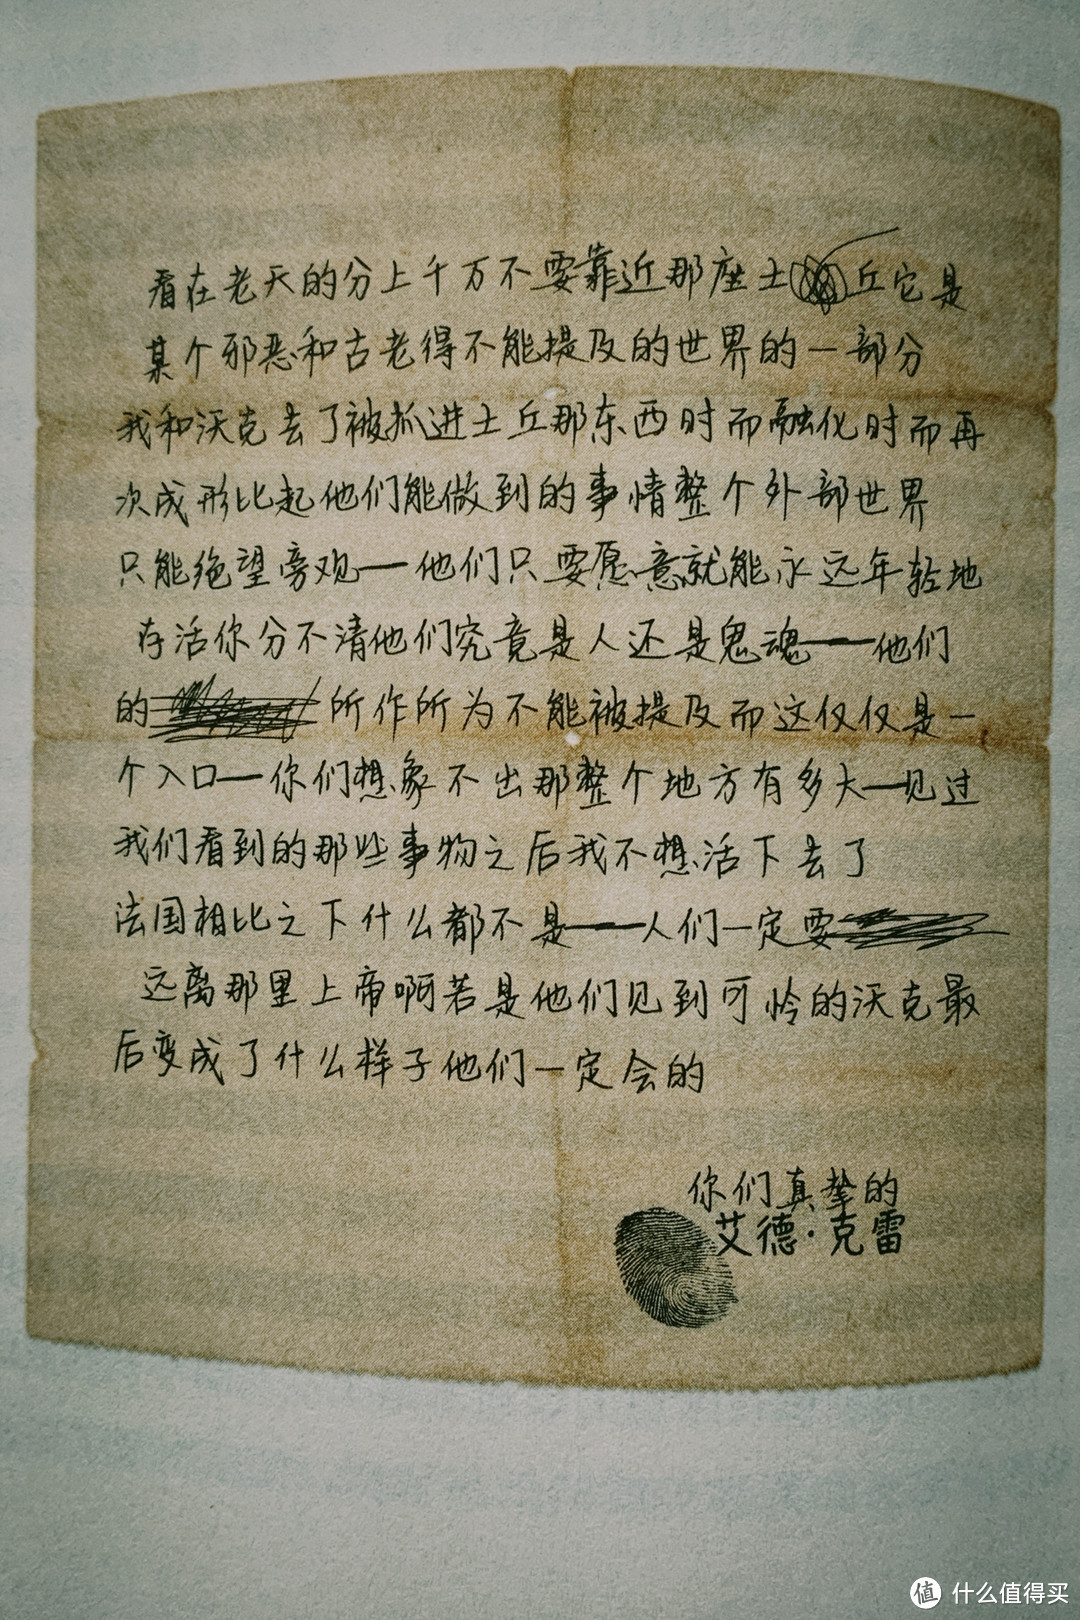 看在老天的分上千万不要靠近那座土丘它是
某个邪恶和古老得不能提及的世界的一部分
我和沃克去了被抓进土丘那东西时而融化时而再
次成形比起他们能做到的事情整个外部世界
只能绝望旁观——他们只要愿意就能永远年轻地
存活你分不清他们究竟是人还是鬼魂——他们
的所作所为不能被提及而这仅仅是一
个入口——你们想象不出那整个地方有多大——见过
我们看到的那些事物之后我不想活下去了
法国相比之下什么都不是——人们一定要
远离那里上帝啊若是他们见到可怜的沃克最
后变成了什么样子他们一定会的
你们真挚的
艾德·克雷
值 什么值得买